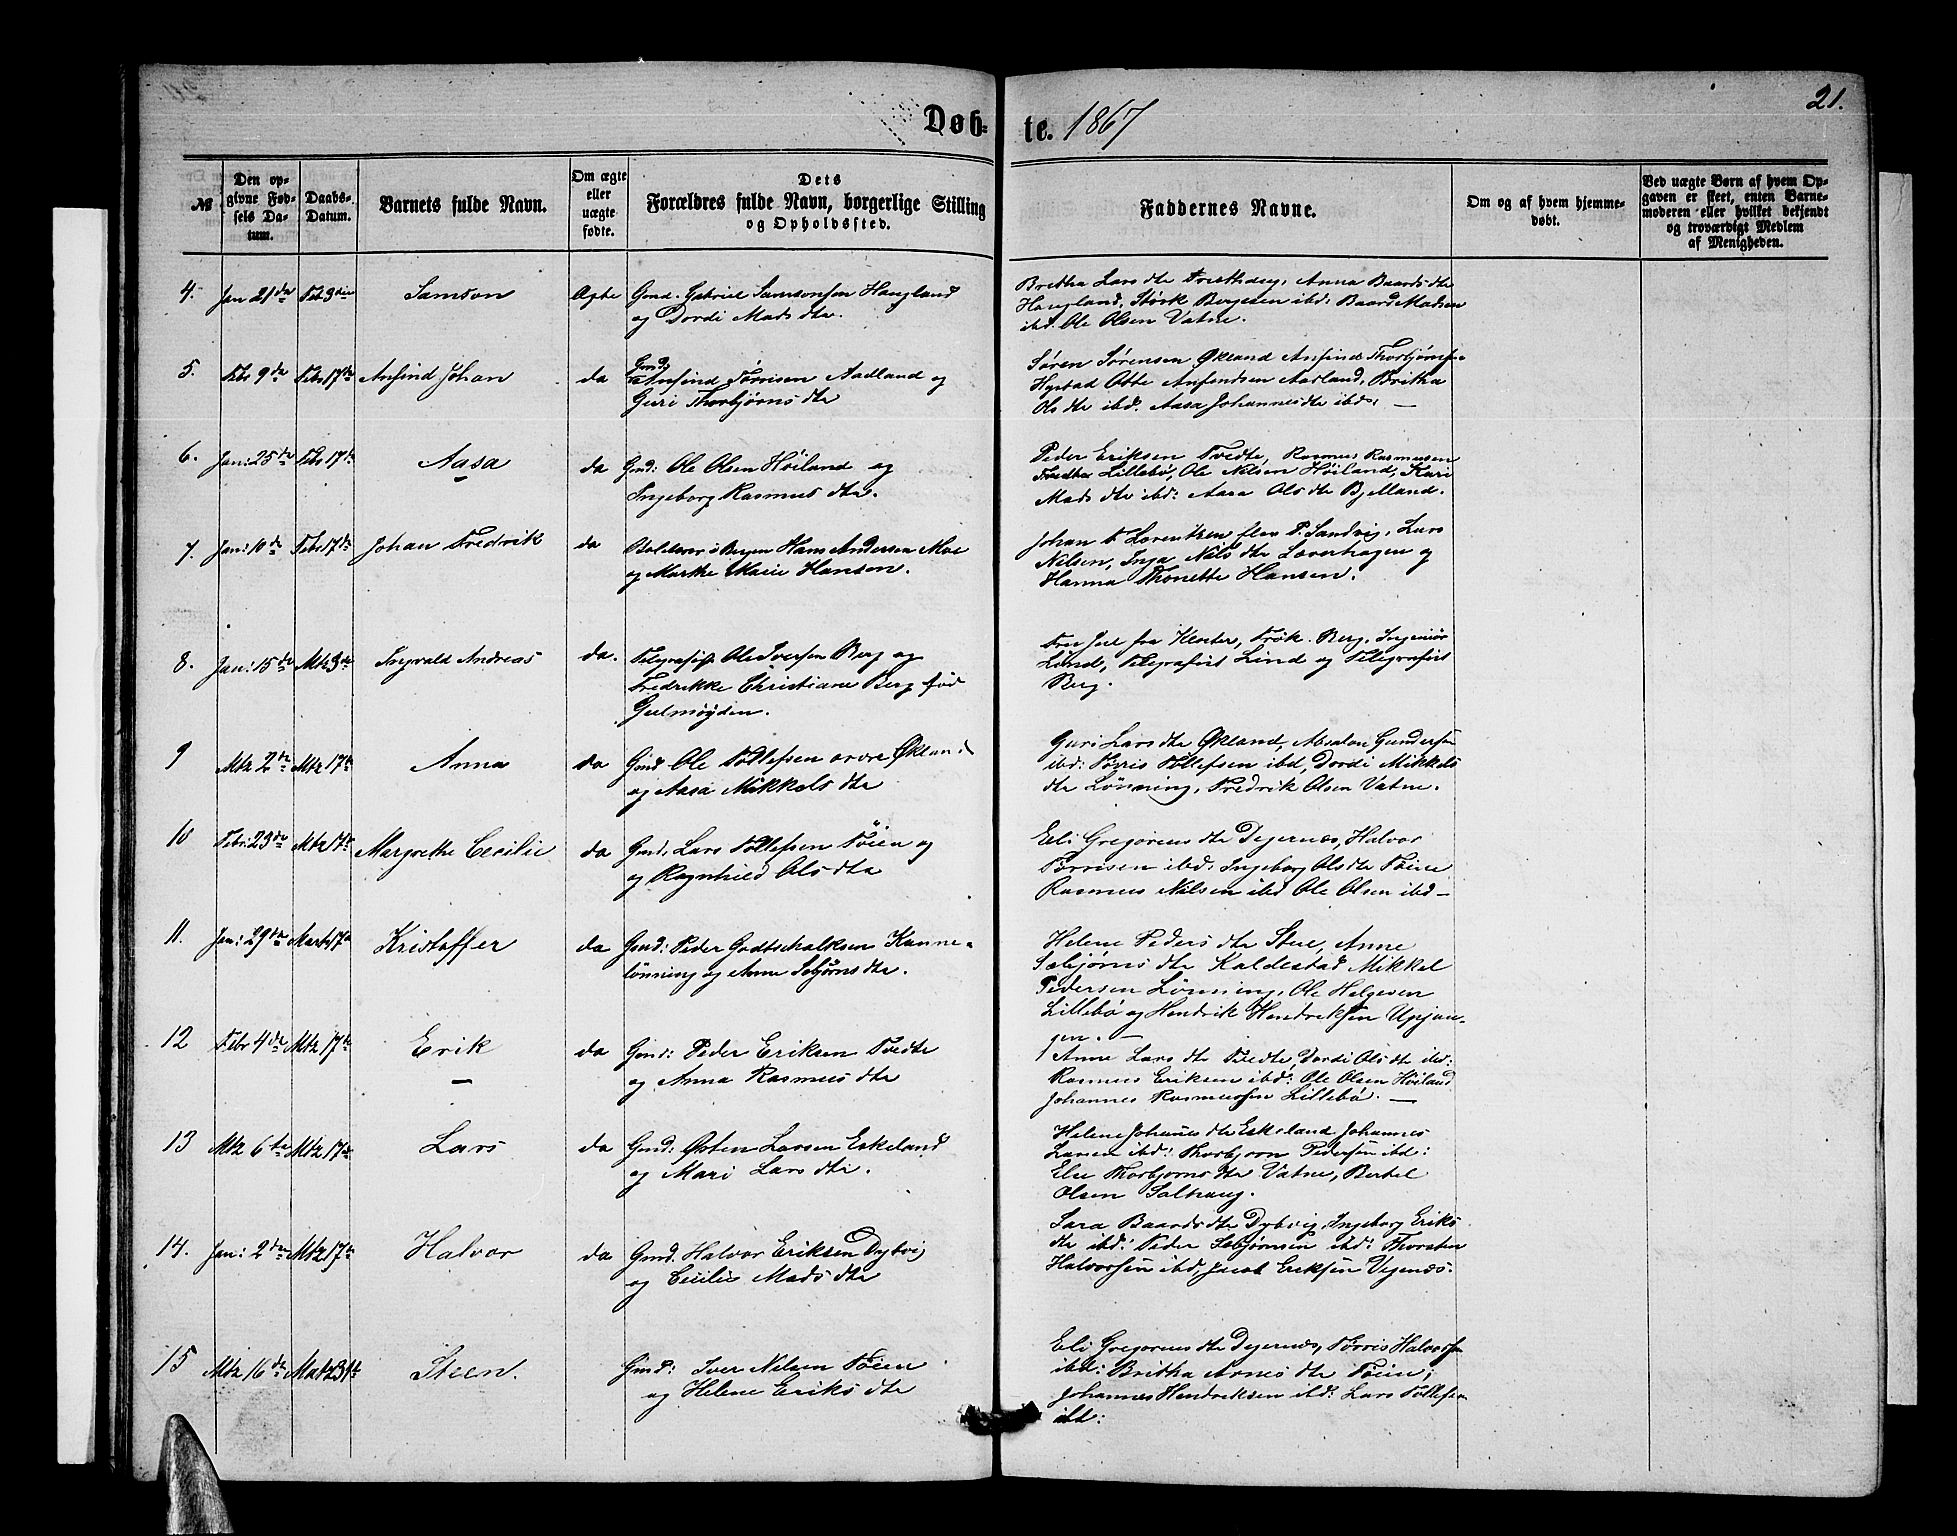 21.
Døb- te. 1867
№
Den op-
givne Fød-
sels Da-
tum.
Daabs-
Datum.
Barnets fulde Navn.
Om ægte
eller
uægte
fødte.
Dets
Forældres fulde Navn, borgerlige Stilling
og Opholdssted.
Faddernes Navne.
Om og af hvem hjemme-
døbt.
Ved uægte Børn af hvem Op-
gaven er skeet, enten Barne-
moderen eller hvilket bekjendt
og troværdigt Medlem
af Menigheden.
4. Jan 21de Feb 3die Samson Ægte Gmd. Gabriel Samsonsen Haugland
og Dordi Mads dtr.
Britha Lars dtr Anna Baards dtr
Haugland, Størk Bergesen ibd: Baard Madsen
ibd. Ole Olsen Vatne.
5. Feb 9de Feb 17de Anfind Johan da Gmd
Anfind Tørrisen Aadland og
Guri Thorbjørns dtr
Søren Sørensen Økland Anfind Thorbjørnsen
Hystad Otte Anfindsen Aadland, Britha
Ols dtr ibd. Aasa Johannesdtr ibd: —
6. Jan: 25de Feb 17de Aasa da Gmd: Ole Olsen Høiland og
Ingeborg Rasmus dtr.
Peder Eriksen Tvedte, Rasmus Rasmussen
Lillebø, Ole Nilsen Høiland, Kari
Mads dtr ibd: Aasa Ols dtr Bjelland.
7. Jan: 10de Feb 17de Johan Fredrik da i Bergen Hans Andersen Moe
og Marthe Marie Hansen.
Johan F. Lorentzen P. Sandvig, Lars
Nelsen, Inga Nils dtr Leervhagen og
Hanna Thonette Hansen.
8. Jan: 15de Mtz 3de Sigvald Andreas da. Telegrafist Ole Iversen Berg og
Fredrikke Christiane Berg fød
Geelmuyden.
Frøk. Berg, Ingeniør
Lund, Telegrafist Lind og Telegrafist
Berg.
9 Mtz 2de Mtz 17de Anna da Gmd Ole Tollefsen øvre Økland
og Aasa Mikkels dtr
Guri Lars dtr Økland, Absalon Gundersen
ibd: Tørris Tollefsen ibd, Dordi Mikkels
dtr Lønning, Fredrik Olsen Vatne.
10 Feb: 23de Mtz 17de Margrethe Cecilie da Gmd. Lars Tollefsen Tøien og
og Ragnhild Ols dtr
Eli Gregorius dtr Dejernes, Halvor
Tørrisen ibd: Ingeborg Ols dtr Tøien
Rasmus Nilsen ibd Ole Olsen ibd —
11. Jan: 29de Marts 17de Kristoffer da Gmd: Peder Godtschalksen Kanne-
lønning og Anna Sebjørns dtr.
Helene Peders dtr Stue, Anne
Sæbjørns dtr Kaldestad Mikkel
Pedersen Lønning, Ole Helgesen
Lillebø og Hendrik Hendriksen Upjan-
gen. —
12 Febr 4de Mtz 17de Erik da Gmd: Peder Eriksen Tvedte
og Anna Rasmus dtr
Anne Lars dtr Tvedte, Dordi Ols dtr ibd:
Rasmus Eriksen ibd: Ole Olsen Høiland
Johannes Rasmussen Lillebø. —
13 Mtz 6te Mtz 17de Lars da Gmd: Østen Larsen Eskeland
og Mari Lars dtr.
Helene Johannes dtr Eskeland Johannes
Larsen ibd: Thorbjørn Pedersen ibd:
Else Thorbjørns dtr Vatne, Bertel
Olsen Saltraug.
14. Jan: 2de Mtz 17de Halvor da Gmd. Halvor Eriksen Dybvig
og Cecilie Mads dtr
Sara Baards dtr Dybvig, Ingeborg Eriks
dtr ibd: Peder Sebjørnsen ibd: Thorsten
Halvorsen ibd, Jacob Eriksen Vejenæs.
15 Mtz 16de Mtz 31te Steen. Gmd: Iver Nelsen Tøien
og Helene Eriks dtr
Eli Gregorius dtr Dejernes, Tørris Halvorsen
ibd: Britha Arnes dtr Tøien;
Johannes Hendriksen ibd: Lars Tollefsen
ibd: